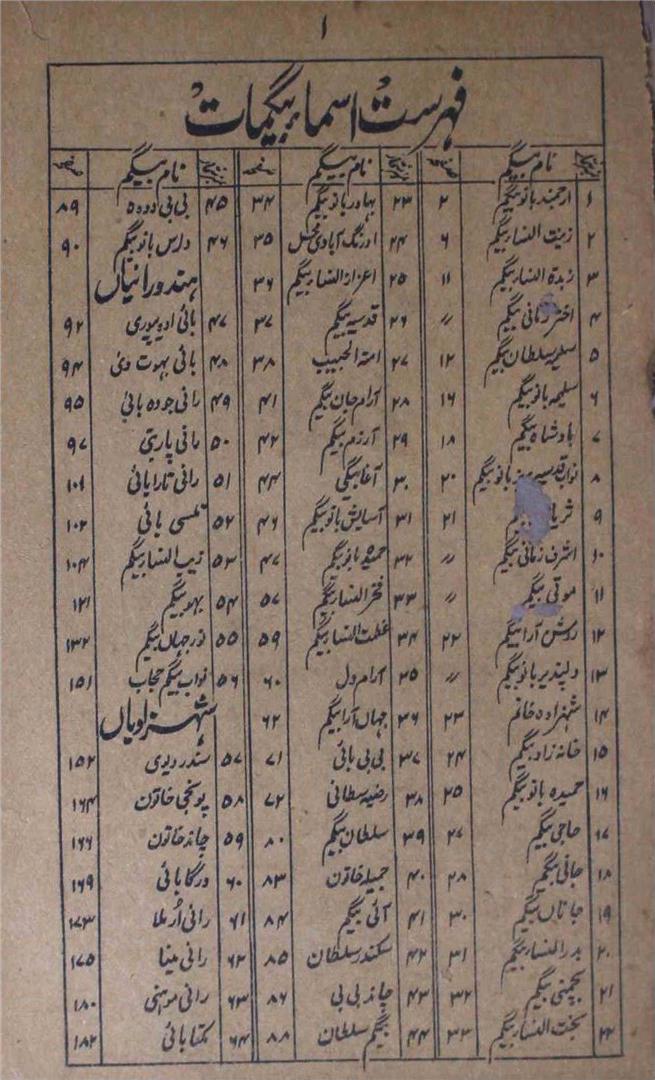 ۱
فہرست اسماء بیگمات
نمبرشمار نام بیگم صفحہ نمبرشمار نام بیگم صفحہ نمبرشمار نام بیگم صفحہ
۱ ارجمند بانو بیگم ۲ ۲۳ بہادر بانو بیگم ۳۴ ۴۵ بی بی دودہ ۸۹
۲ زینت النسا بیگم ۶ ۲۴ اورنگ آبادی محل ۳۵ ۴۶ دارس بانو بیگم ۹۰
۳ زبدۃ النسا بیگم ۱۱ ۲۵ اعزاز النسا بیگم ۳۶ ہندو رانیاں
۴ اختر زمانی بیگم 〃 ۲۶ قدسیہ بیگم ۳۷ ۴۷ بائی اودیپوری ۹۲
۵ سلطان بیگم ۱۲ ۲۷ امۃ الحبیب ۳۸ ۴۸ بائی بہوت دی ۹۴
۶ سلیمہ بانو بیگم ۱۶ ۲۸ آرام جان بیگم ۴۱ ۴۹ رانی جودہ بائی ۹۵
۷ بادشاہ بیگم ۱۸ ۲۹ آرزم بیگم ۴۲ ۵۰ رانی پاربتی ۹۷
۸ نواب قدسیہ بانو بیگم ۲۰ ۳۰ آغا بیگی ۴۴ ۵۱ رانی تارا بائی ۱۰۱
۹ ثریا بیگم ۲۱ ۳۱ آسایش بانو بیگم ۴۶ ۵۲ تلسی بائی ۱۰۲
۱۰ اشرف زمانی بیگم 〃 ۳۲ حمیدہ بانو بیگم ۴۷ ۵۳ زیب النسا بیگم ۱۰۴
۱۱ موتی بیگم 〃 ۳۳ فخر النسا بیگم ۵۷ ۵۴ بہو بیگم ۱۲۱
۱۲ روشن آرا بیگم ۲۲ ۳۴ عظمت النسا بیگم ۵۹ ۵۵ نور جہاں بیگم ۱۳۲
۱۳ دلپذیر بانو بیگم 〃 ۳۵ آرام دل ۶۰ ۵۶ نواب بیگم حجاب ۱۵۱
۱۴ شہزادہ خانم ۲۳ ۳۶ جہاں آرا بیگم ۶۲ شہزادیاں
۱۵ خانہ زاد بیگم ۲۴ ۳۷ بی بی بائی ۷۱ ۵۷ سندر دیوی ۱۵۲
۱۶ حمیدہ بانو بیگم ۲۵ ۳۸ رضیہ سطانی ۷۲ ۵۸ پونجی خاتون ۱۶۴
۱۷ حاجی بیگم ۲۷ ۳۹ سلطان بیگم ۸۰ ۵۹ چاند خاتون ۱۶۶
۱۸ جانی بیگم ۲۸ ۴۰ جمیلہ خاتون ۸۳ ۶۰ درگا بائی ۱۶۹
۱۹ جاناں بیگم ۳۰ ۴۱ آئی بیگم ۸۴ ۶۱ رانی اُرملا ۱۷۳
۲۰ بدر النسا بیگم ۳۱ ۴۲ سکندر سلطان ۸۵ ۶۲ رانی مینا ۱۷۵
۲۱ بچمنی بیگم ۳۲ ۴۳ چاند بی بی ۸۶ ۶۳ رانی موہنی ۱۸۰
۲۲ بخت النسا بیگم ۳۳ ۴۴ بیگم سلطان ۸۸ ۶۴ مکتا بائی ۱۸۲